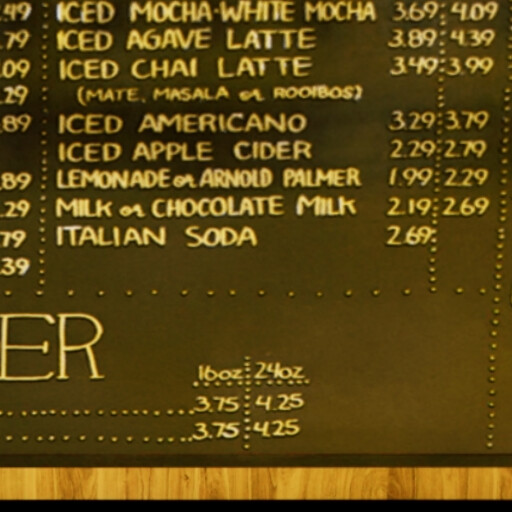 .49 ICED MOCHA·WHITE MOCHA 3.69 4.09
.79 ICED AGAVE LATTE 3.89 4.39
.09 ICED CHAI LATTE 3.49 3.99
.29 (MATE, MASALA or ROOIBOS)
.89 ICED AMERICANO 3.29 3.79
ICED APPLE CIDER 2.29 2.79
.89 LEMONADE or ARNOLD PALMER 1.99 2.29
.29 MILK or CHOCOLATE MILK 2.19 2.69
.79 ITALIAN SODA 2.69
.39
ER
16oz 24oz
3.75 4.25
3.75 4.25